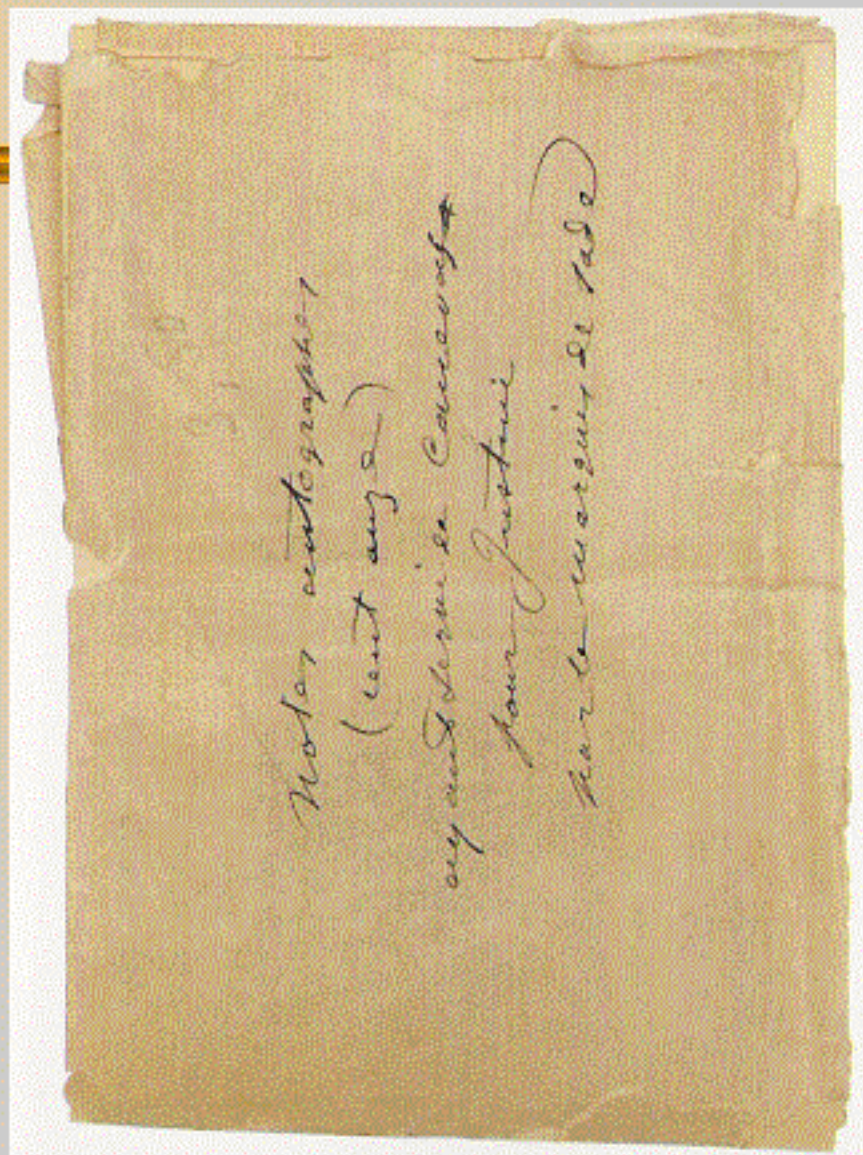 Notes autographes
(cent onze)
ayant servi de Canevas
pour Justine
par le marquis de Sade)